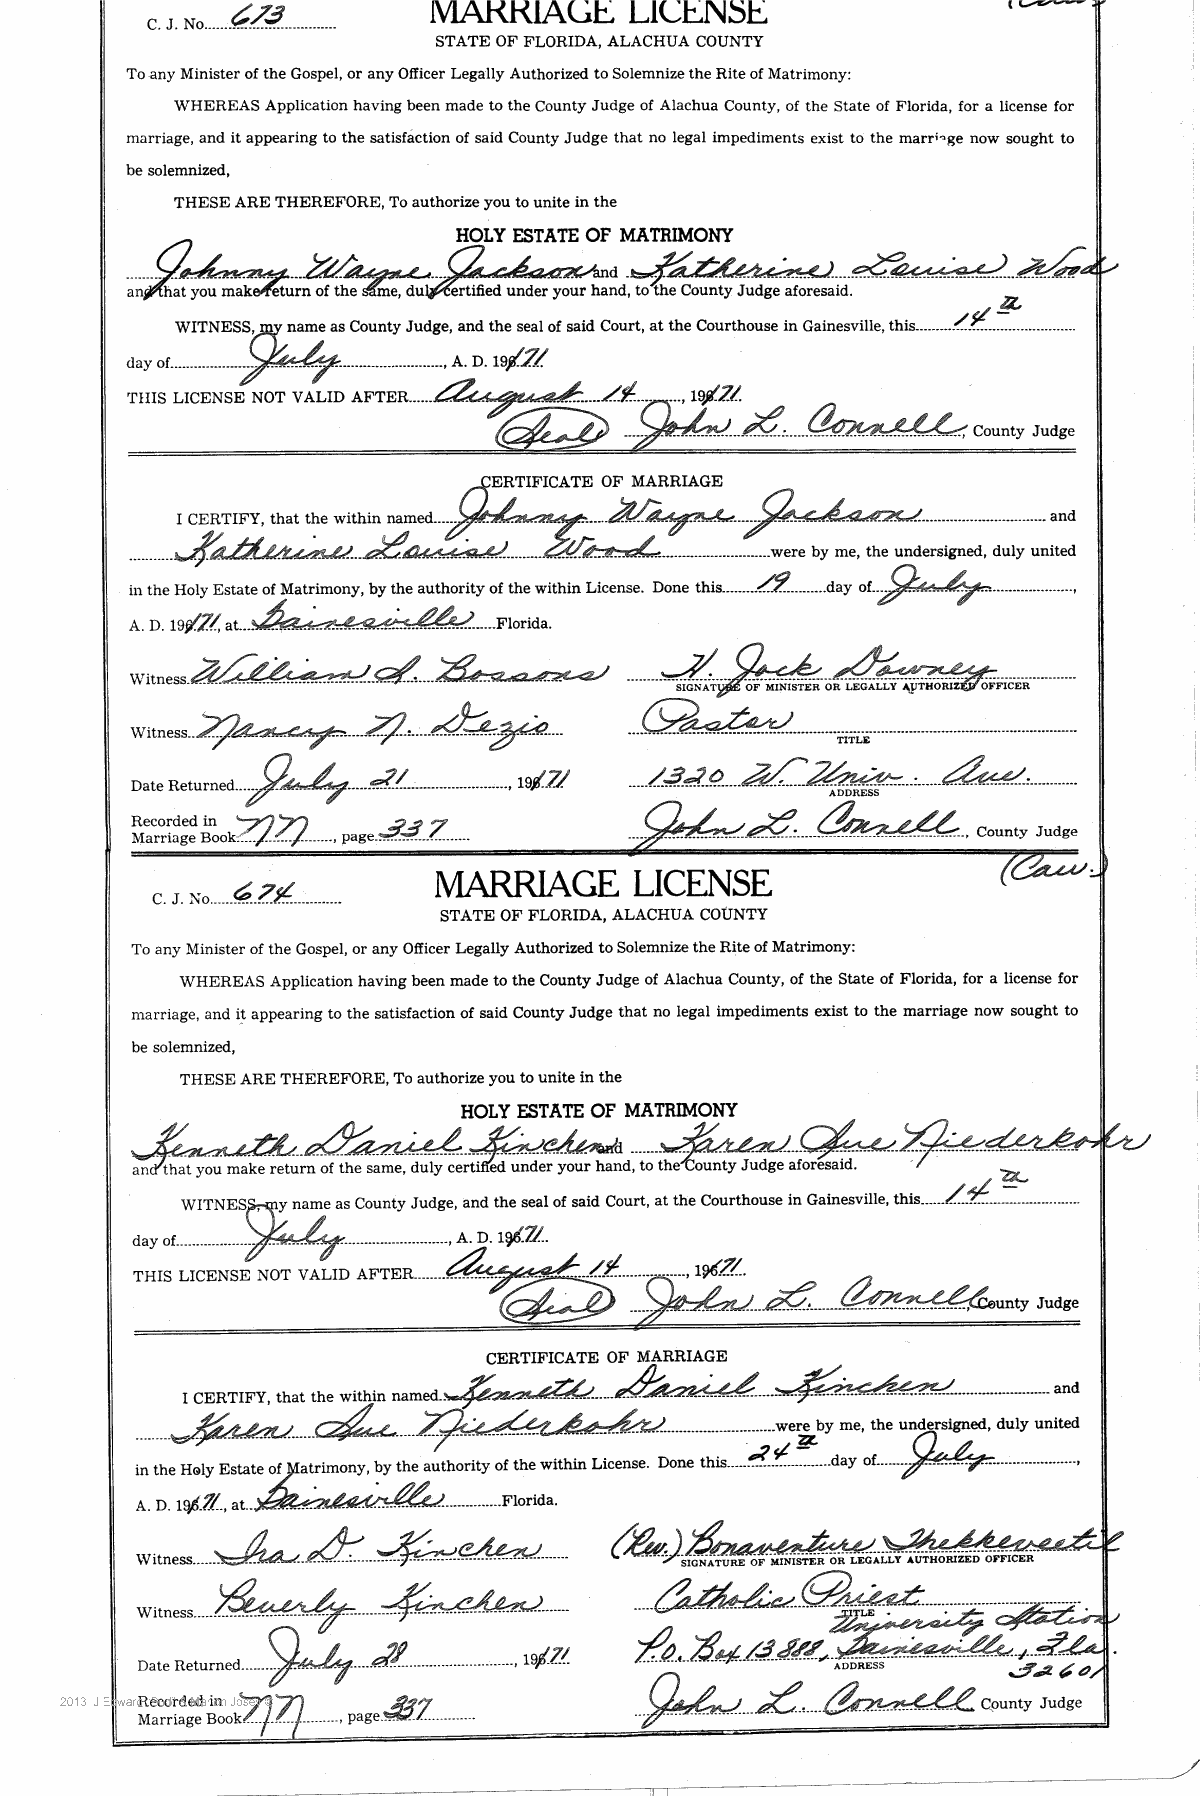 (Cau.)
C. J. No. 673 MARRIAGE LICENSE
STATE OF FLORIDA, ALACHUA COUNTY
To any Minister of the Gospel, or any Officer Legally Authorized to Solemnize the Rite of Matrimony:
WHEREAS Application having been made to the County Judge of Alachua County, of the State of Florida, for a license for
marriage, and it appearing to the satisfaction of said County Judge that no legal impediments exist to the marriage now sought to
be solemnized,
THESE ARE THEREFORE, To authorize you to unite in the
HOLY ESTATE OF MATRIMONY
Johnny Wayne Jackson and Katherine Louise Wood
and that you make return of the same, duly certified under your hand, to the County Judge aforesaid.
WITNESS, my name as County Judge, and the seal of said Court, at the Courthouse in Gainesville, this 14th
day of July, A. D. 1971.
THIS LICENSE NOT VALID AFTER August 14, 1971.
(Seal) John L. Connell, County Judge
CERTIFICATE OF MARRIAGE
I CERTIFY, that the within named Johnny Wayne Jackson and
Katherine Louise Wood were by me, the undersigned, duly united
in the Holy Estate of Matrimony, by the authority of the within License. Done this 19 day of July,
A. D. 1971, at Gainesville Florida.
Witness William S. Bossons H. Jack Downey
SIGNATURE OF MINISTER OR LEGALLY AUTHORIZED OFFICER
Witness Nancy N. Dezio Pastor
TITLE
Date Returned July 21, 1971 1320 W. Univ. Ave.
ADDRESS
Recorded in
Marriage Book NN, page 337 John L. Connell, County Judge
(Cau.)
C. J. No. 674 MARRIAGE LICENSE
STATE OF FLORIDA, ALACHUA COUNTY
To any Minister of the Gospel, or any Officer Legally Authorized to Solemnize the Rite of Matrimony:
WHEREAS Application having been made to the County Judge of Alachua County, of the State of Florida, for a license for
marriage, and it appearing to the satisfaction of said County Judge that no legal impediments exist to the marriage now sought to
be solemnized,
THESE ARE THEREFORE, To authorize you to unite in the
HOLY ESTATE OF MATRIMONY
Kenneth Daniel Kinchen and Karen Sue Niederkohr
and that you make return of the same, duly certified under your hand, to the County Judge aforesaid.
WITNESS, my name as County Judge, and the seal of said Court, at the Courthouse in Gainesville, this 14th
day of July, A. D. 1971.
THIS LICENSE NOT VALID AFTER August 14, 1971.
(Seal) John L. Connell, County Judge
CERTIFICATE OF MARRIAGE
I CERTIFY, that the within named Kenneth Daniel Kinchen and
Karen Sue Niederkohr were by me, the undersigned, duly united
in the Holy Estate of Matrimony, by the authority of the within License. Done this 24th day of July,
A. D. 1971, at Gainesville Florida.
Witness Ira D. Kinchen (Rev.) Bonaventure Thekkeveetil
SIGNATURE OF MINISTER OR LEGALLY AUTHORIZED OFFICER
Witness Beverly Kinchen Catholic Priest
TITLE
University Station
Date Returned July 28, 1971 P.O. Box 13888, Gainesville, Fla.
ADDRESS 32601
Recorded in
Marriage Book NN, page 337 John L. Connell County Judge
2013 J Edward